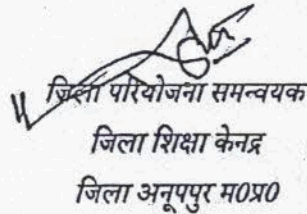 जिला परियोजना समन्वयक
जिला शिक्षा केनद्र
जिला अनूपपुर म0प्र0